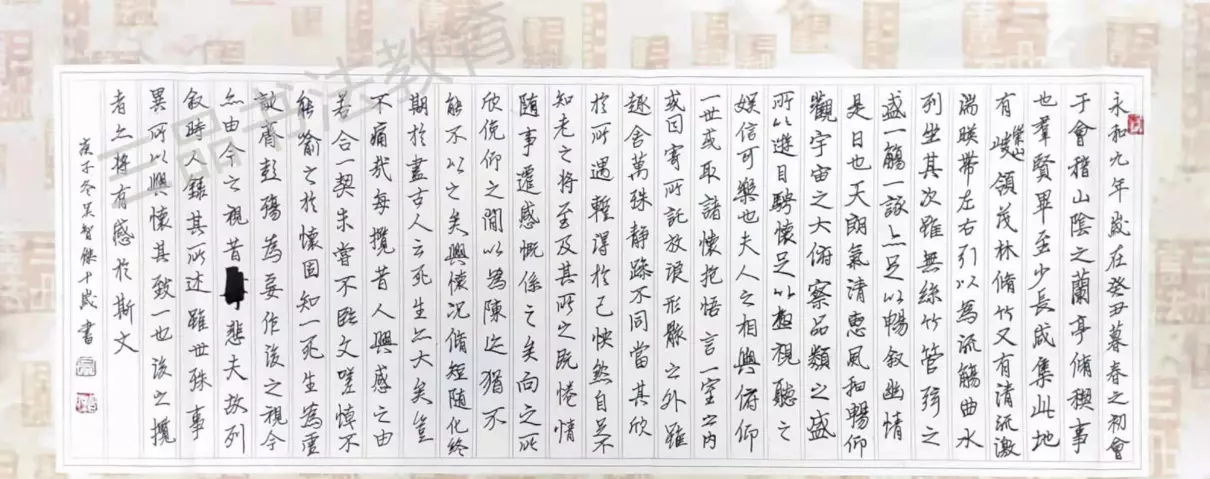 永和九年歲在癸丑暮春之初會
于會稽山陰之蘭亭脩稧事
也羣賢畢至少長咸集此地
有崇山峻領茂林脩竹又有清流激
湍暎帶左右引以為流觴曲水
列坐其次雖無絲竹管弦之
盛一觴一詠亦足以暢敘幽情
是日也天朗氣清惠風和暢仰
觀宇宙之大俯察品類之盛
所以遊目騁懷足以極視聽之
娛信可樂也夫人之相與俯仰
一世或取諸懷抱悟言一室之內
或因寄所託放浪形骸之外雖
趣舍萬殊靜躁不同當其欣
於所遇蹔得於己怏然自足不
知老之將至及其所之既惓情
隨事遷感慨係之矣向之所
欣俛仰之間以為陳迹猶不
能不以之興懷況脩短隨化終
期於盡古人云死生亦大矣豈
不痛哉每攬昔人興感之由
若合一契未嘗不臨文嗟悼不
能喻之於懷固知一死生為虛
誕齊彭殤為妄作後之視今
亦由今之視昔悲夫故列
敘時人錄其所述雖世殊事
異所以興懷其致一也後之攬
者亦將有感於斯文
庚子冬吳智傑十歲書
三品书法教育